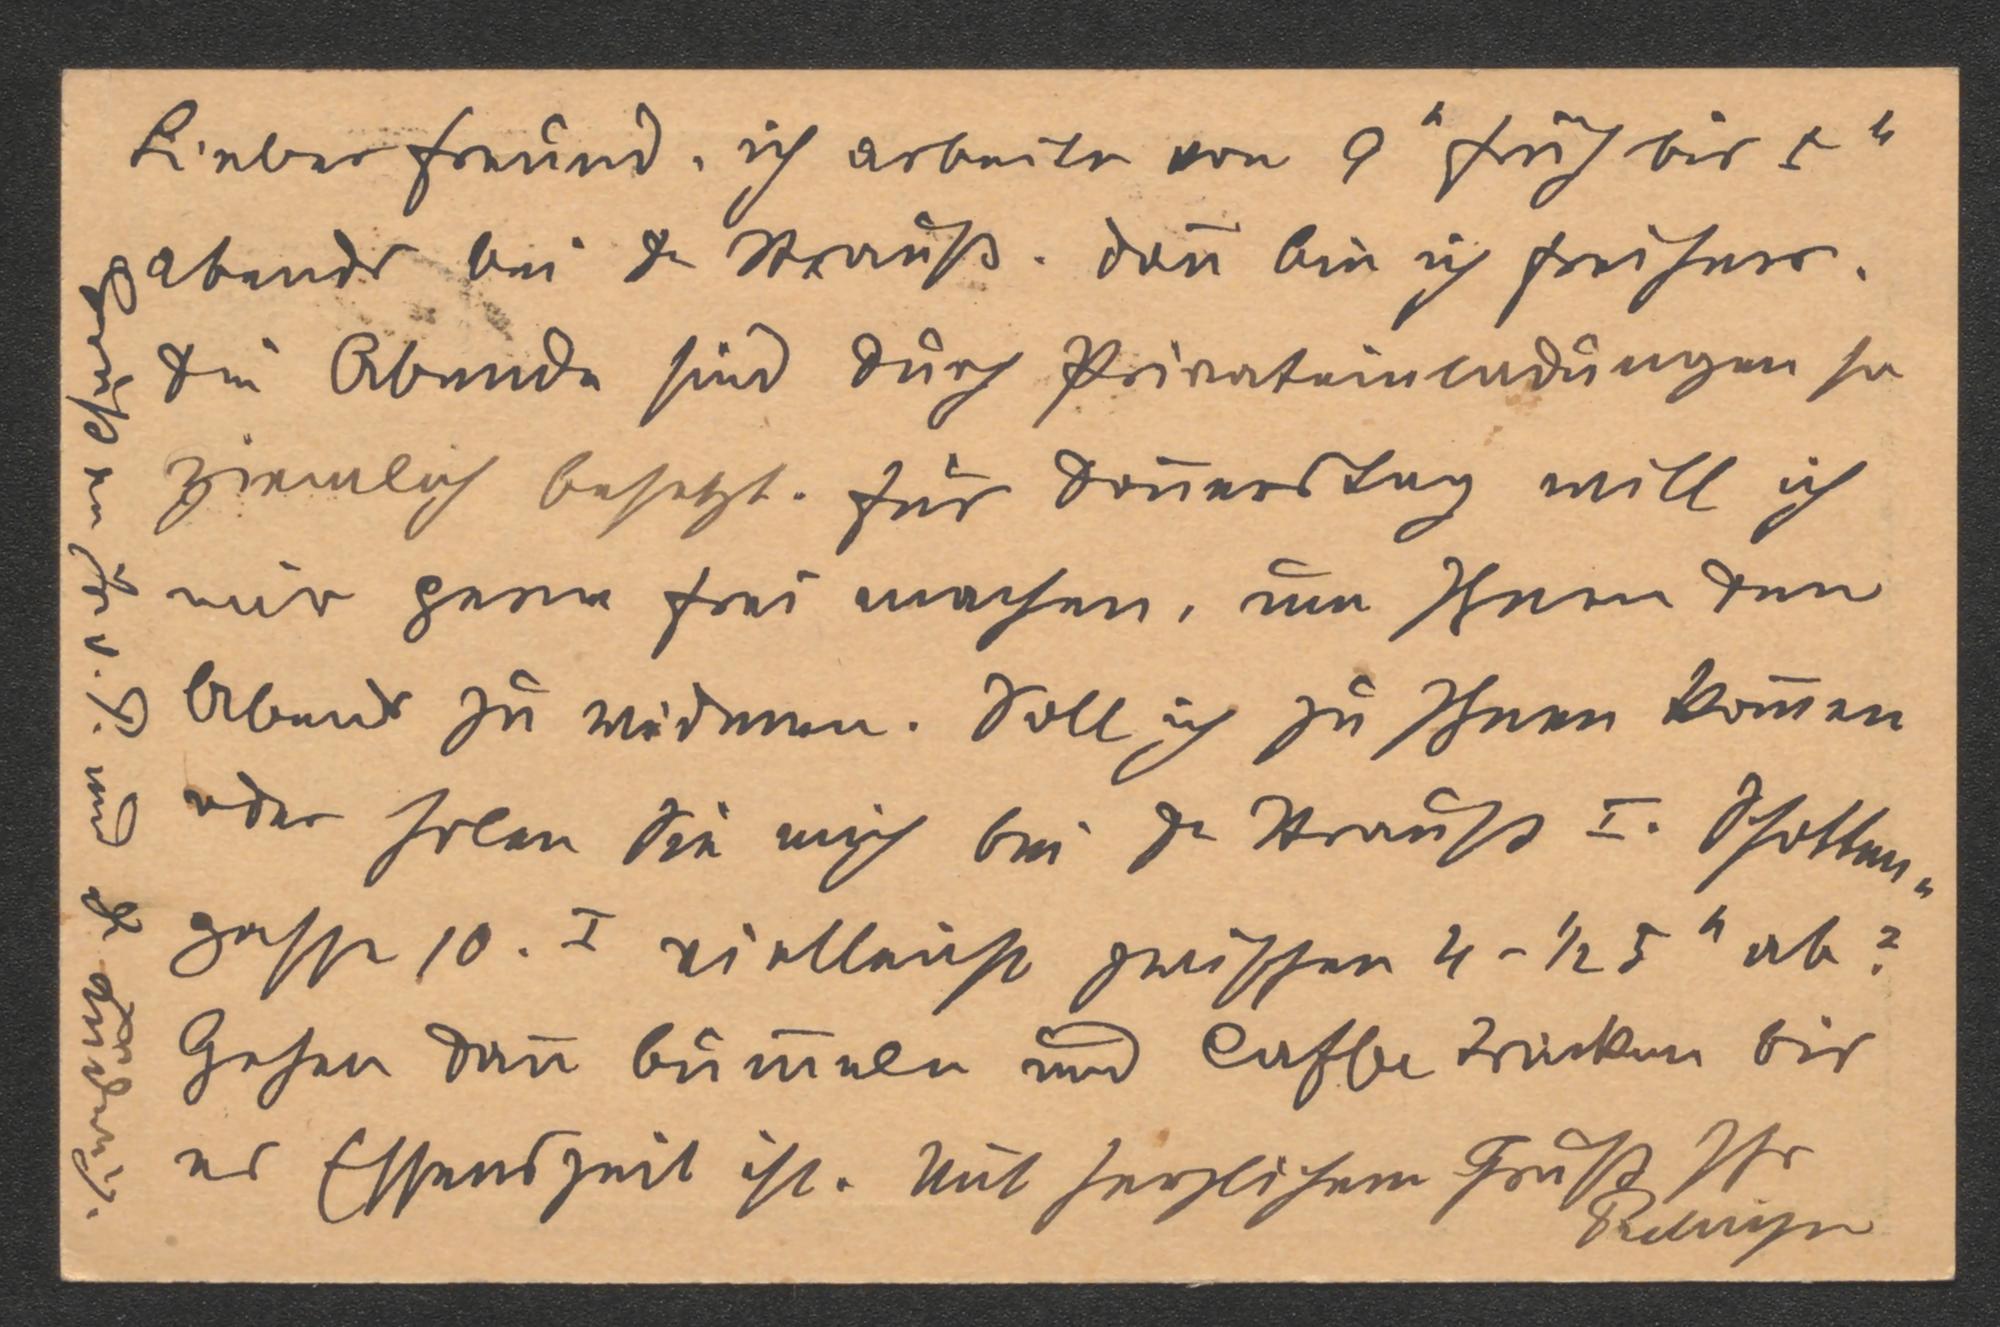 Lieber Freund, ich arbeite von 9h früh bis 5h
abends bei Dr Strauß. Dan̄ bin ich freiherr.
Die Abende sind durch Privateinladungen so
ziemlich besetzt. Für Don̄erstag will ich
mir gerne frei machen, um Ihnen den
Abend zu widmen. Soll ich zu Ihnen kom̄en
oder holen Sie mich bei Dr Strauß I. Schotten„
gasse 10. I vielleicht zwischen 4 - ½ 5h ab?
Gehen dan̄ bum̄eln und Caffee trinken bis
es Essenszeit ist. Mit herzlichem Gruß Ihr
Grüße an und